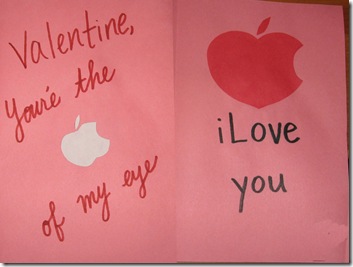 Valentine,
You're the
of my eye
iLove
you